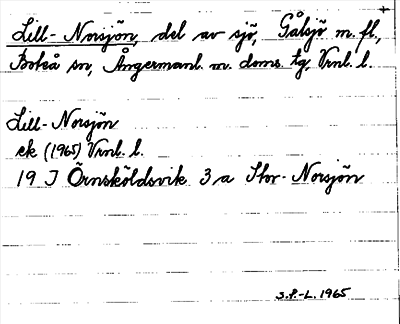 Lill-Norsjön, del av sjö, Gålsjö m. fl.,
Boteå sn, Ångermanl. m. doms. tg, Vrnl. l.
Lill-Norsjön
ek (1965) Vrnl. l.
19 J Örnsköldsvik 3 a Stor-Norsjön
S.P.-L. 1965